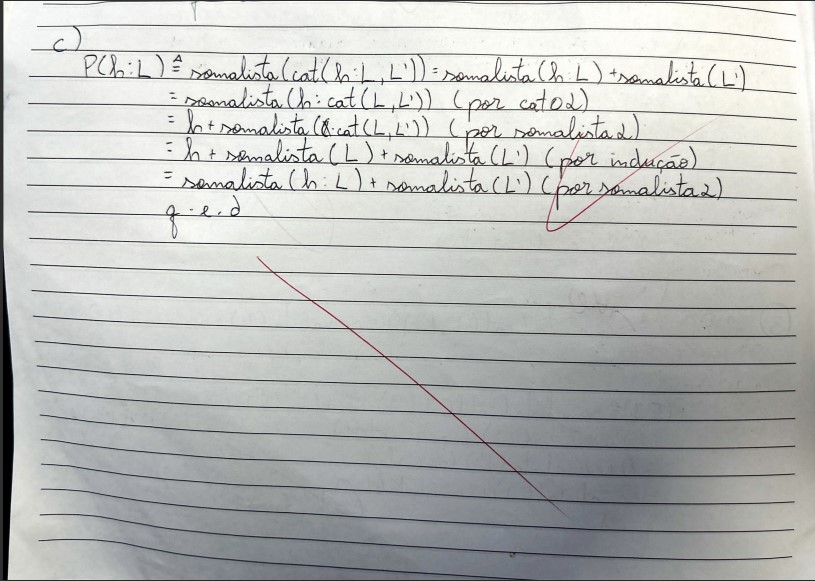 c)
P(h:L) ≙ somalista(cat(h:L,L')) = somalista(h:L) + somalista(L')
= somalista(h:cat(L,L')) (por cat02)
= h + somalista(cat(L,L')) (por somalista2)
= h + somalista(L) + somalista(L') (por indução)
= somalista(h:L) + somalista(L') (por somalista2)
q.e.d